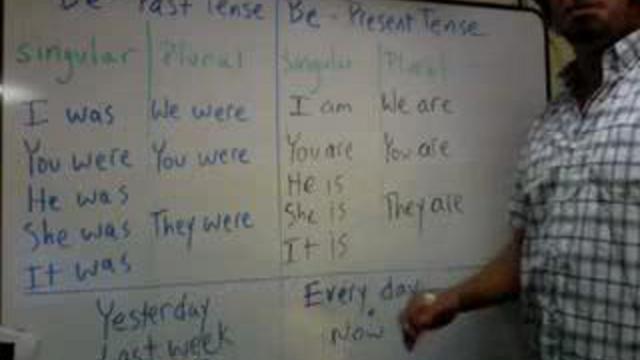 Be - Past Tense
Singular Plural
I was We were
You were You were
He was
She was They were
It was
Yesterday
Last week
Be - Present Tense
Singular Plural
I am We are
You are You are
He is
She is They are
It is
Every day
Now